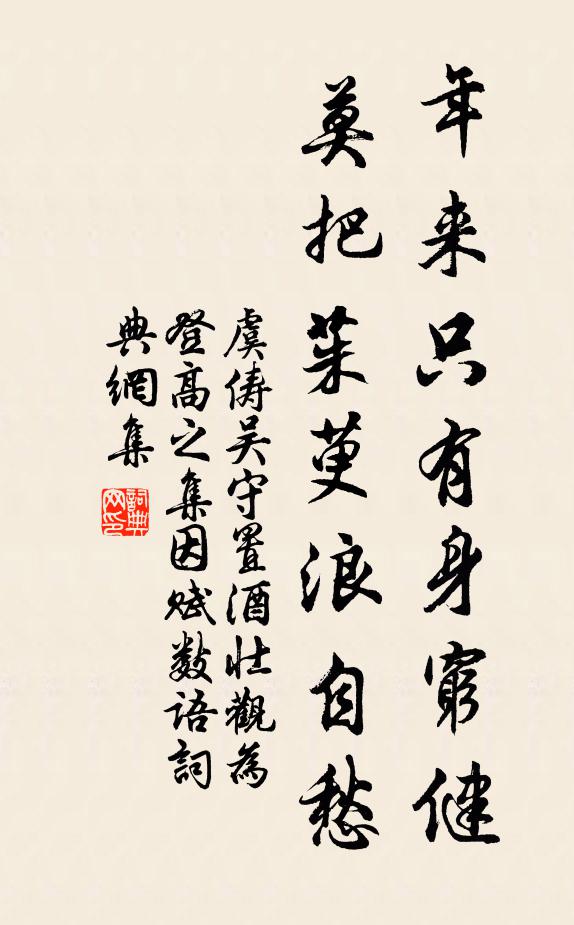 年来只有身窮健
莫把茱萸浪自愁
虞儔吴守置酒壮觀為
登高之集因赋數语詞
典網集
詞典
网印